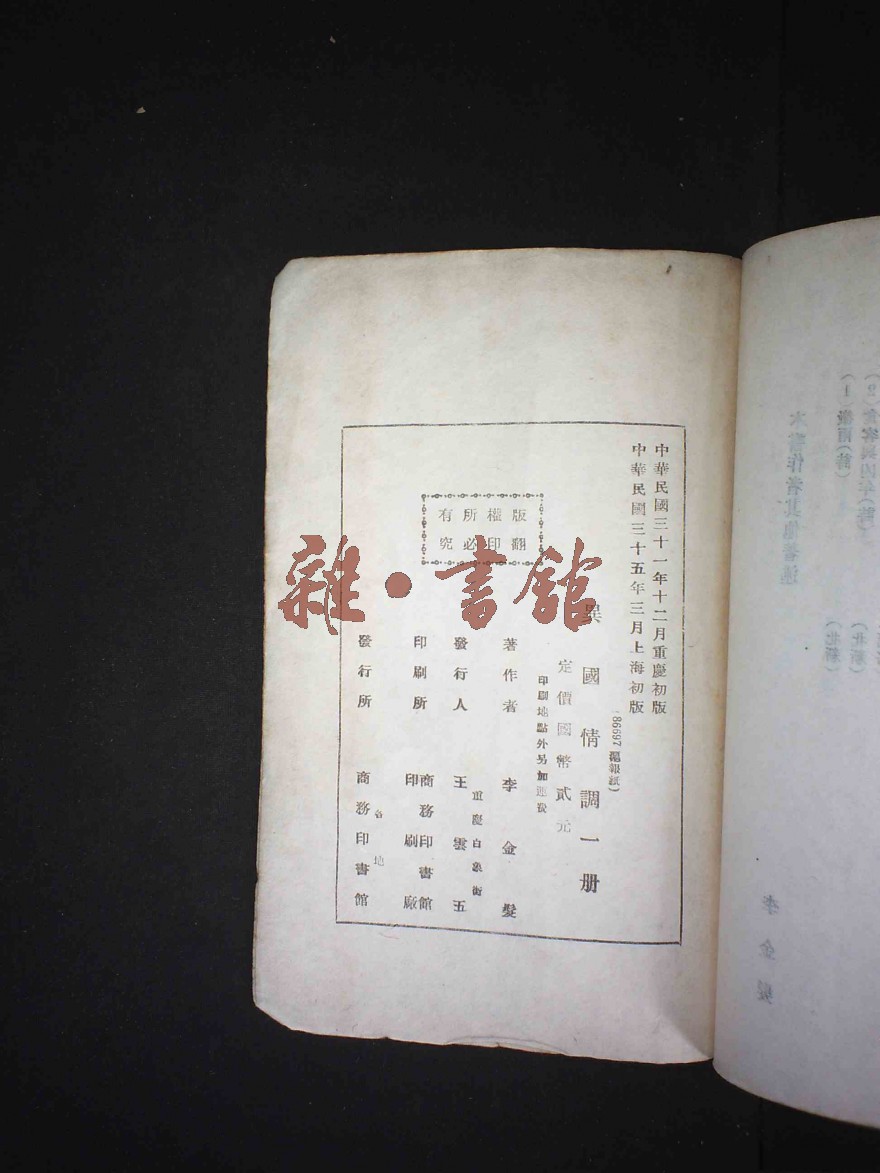 中華民國三十一年十二月重慶初版
中華民國三十五年三月上海初版
(86697 滬報紙)
異國情調一册
定價國幣貳元
印刷地點外另加運費
著作者 李金髮
重慶白象街
發行人 王雲五
印刷所 商務印書館
印刷廠
各地
發行所 商務印書館
版權所有
翻印必究
雜·書館
本書作者其他著述
李金髮
(1)微雨(詩)
(北新)
(2)食客與凶年(詩)
(北新)